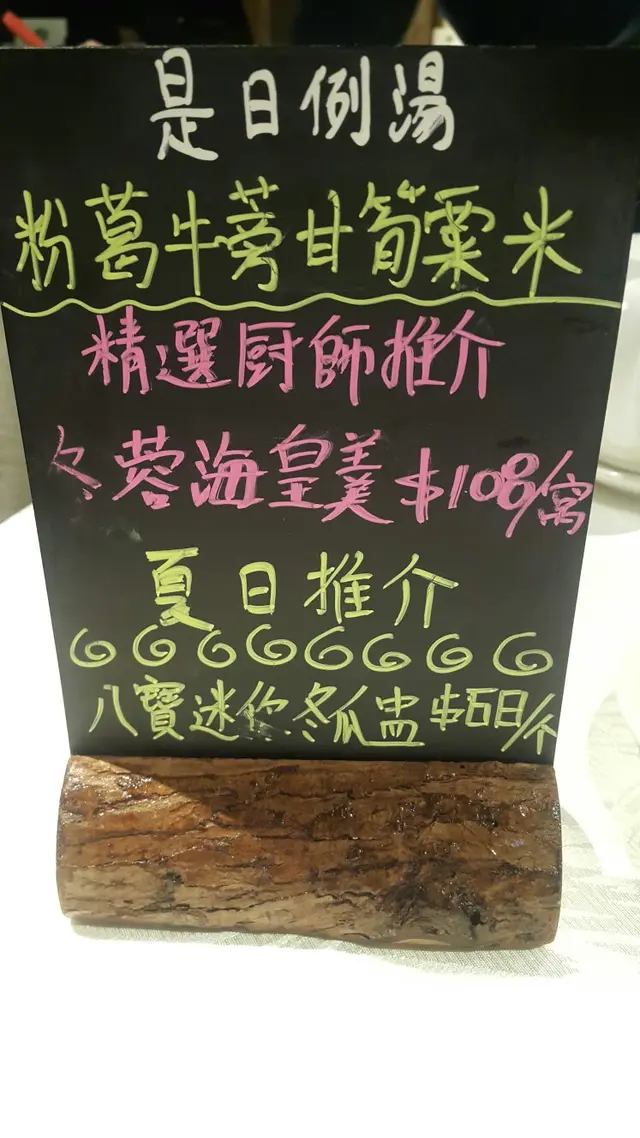 是日例湯
粉葛牛蒡甘筍粟米
精選厨師推介
冬蓉海皇羹 $108/窩
夏日推介
八寶迷你冬瓜盅 $68/个